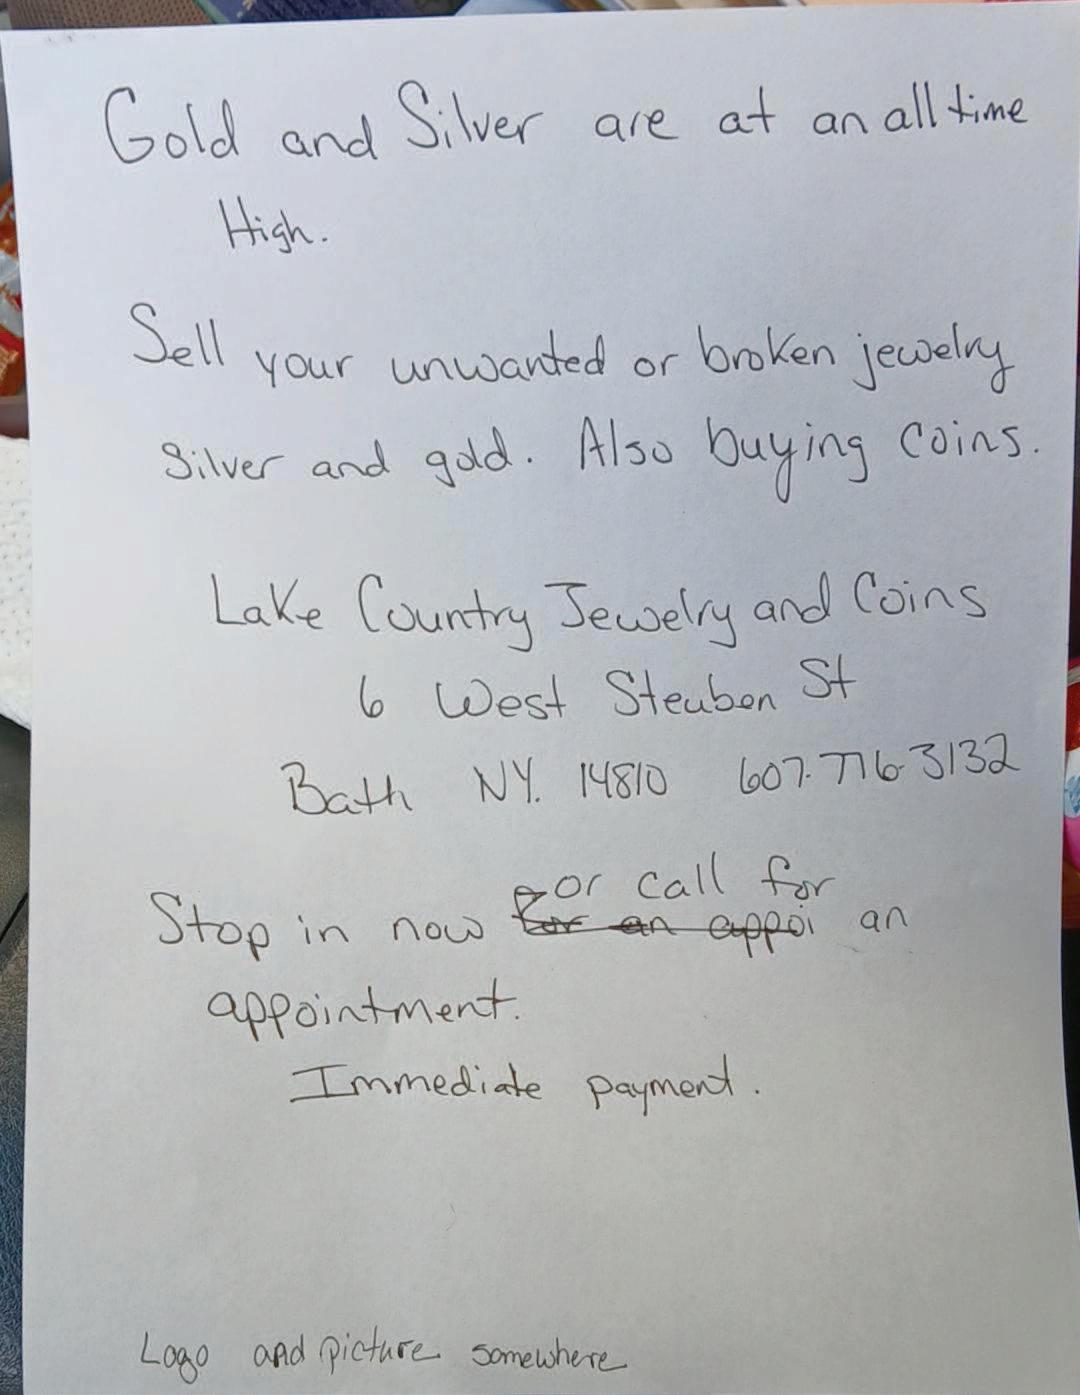 Gold and Silver are at an all time
High.
Sell your unwanted or broken jewelry
Silver and gold. Also buying coins.
Lake Country Jewelry and Coins
6 West Steuben St
Bath NY. 14810 607-776-3132
or call for
Stop in now for an appoi an
appointment.
Immediate payment.
Logo and picture somewhere